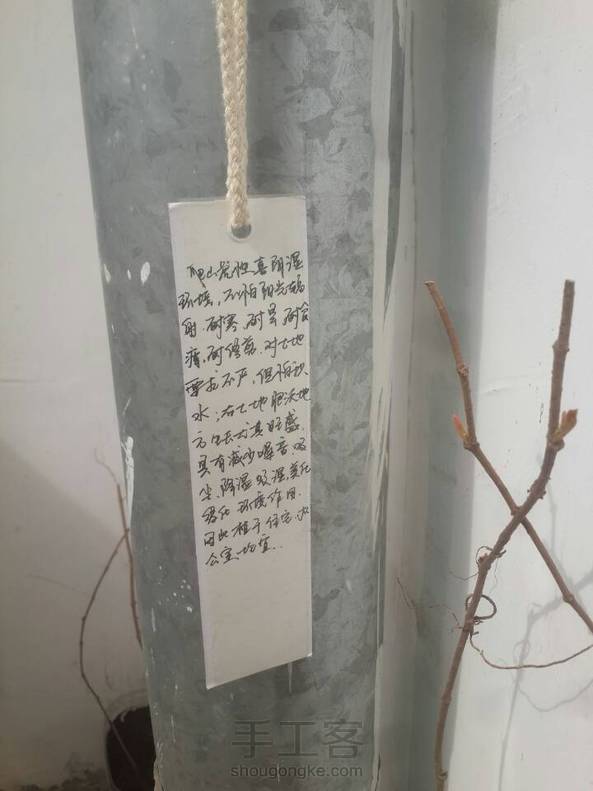 爬山虎性喜阴湿
环境，不怕阳光辐
射.耐寒,耐旱,耐贫
瘠,耐修剪.对土地
要求不严,但怕积
水;在土地肥沃地
方生长才更旺盛.
具有减少噪音.吸
尘、降湿吸湿,美化
绿化环境作用.
因此植于住宅、办
公室均宜.
手工客
shougongke.com